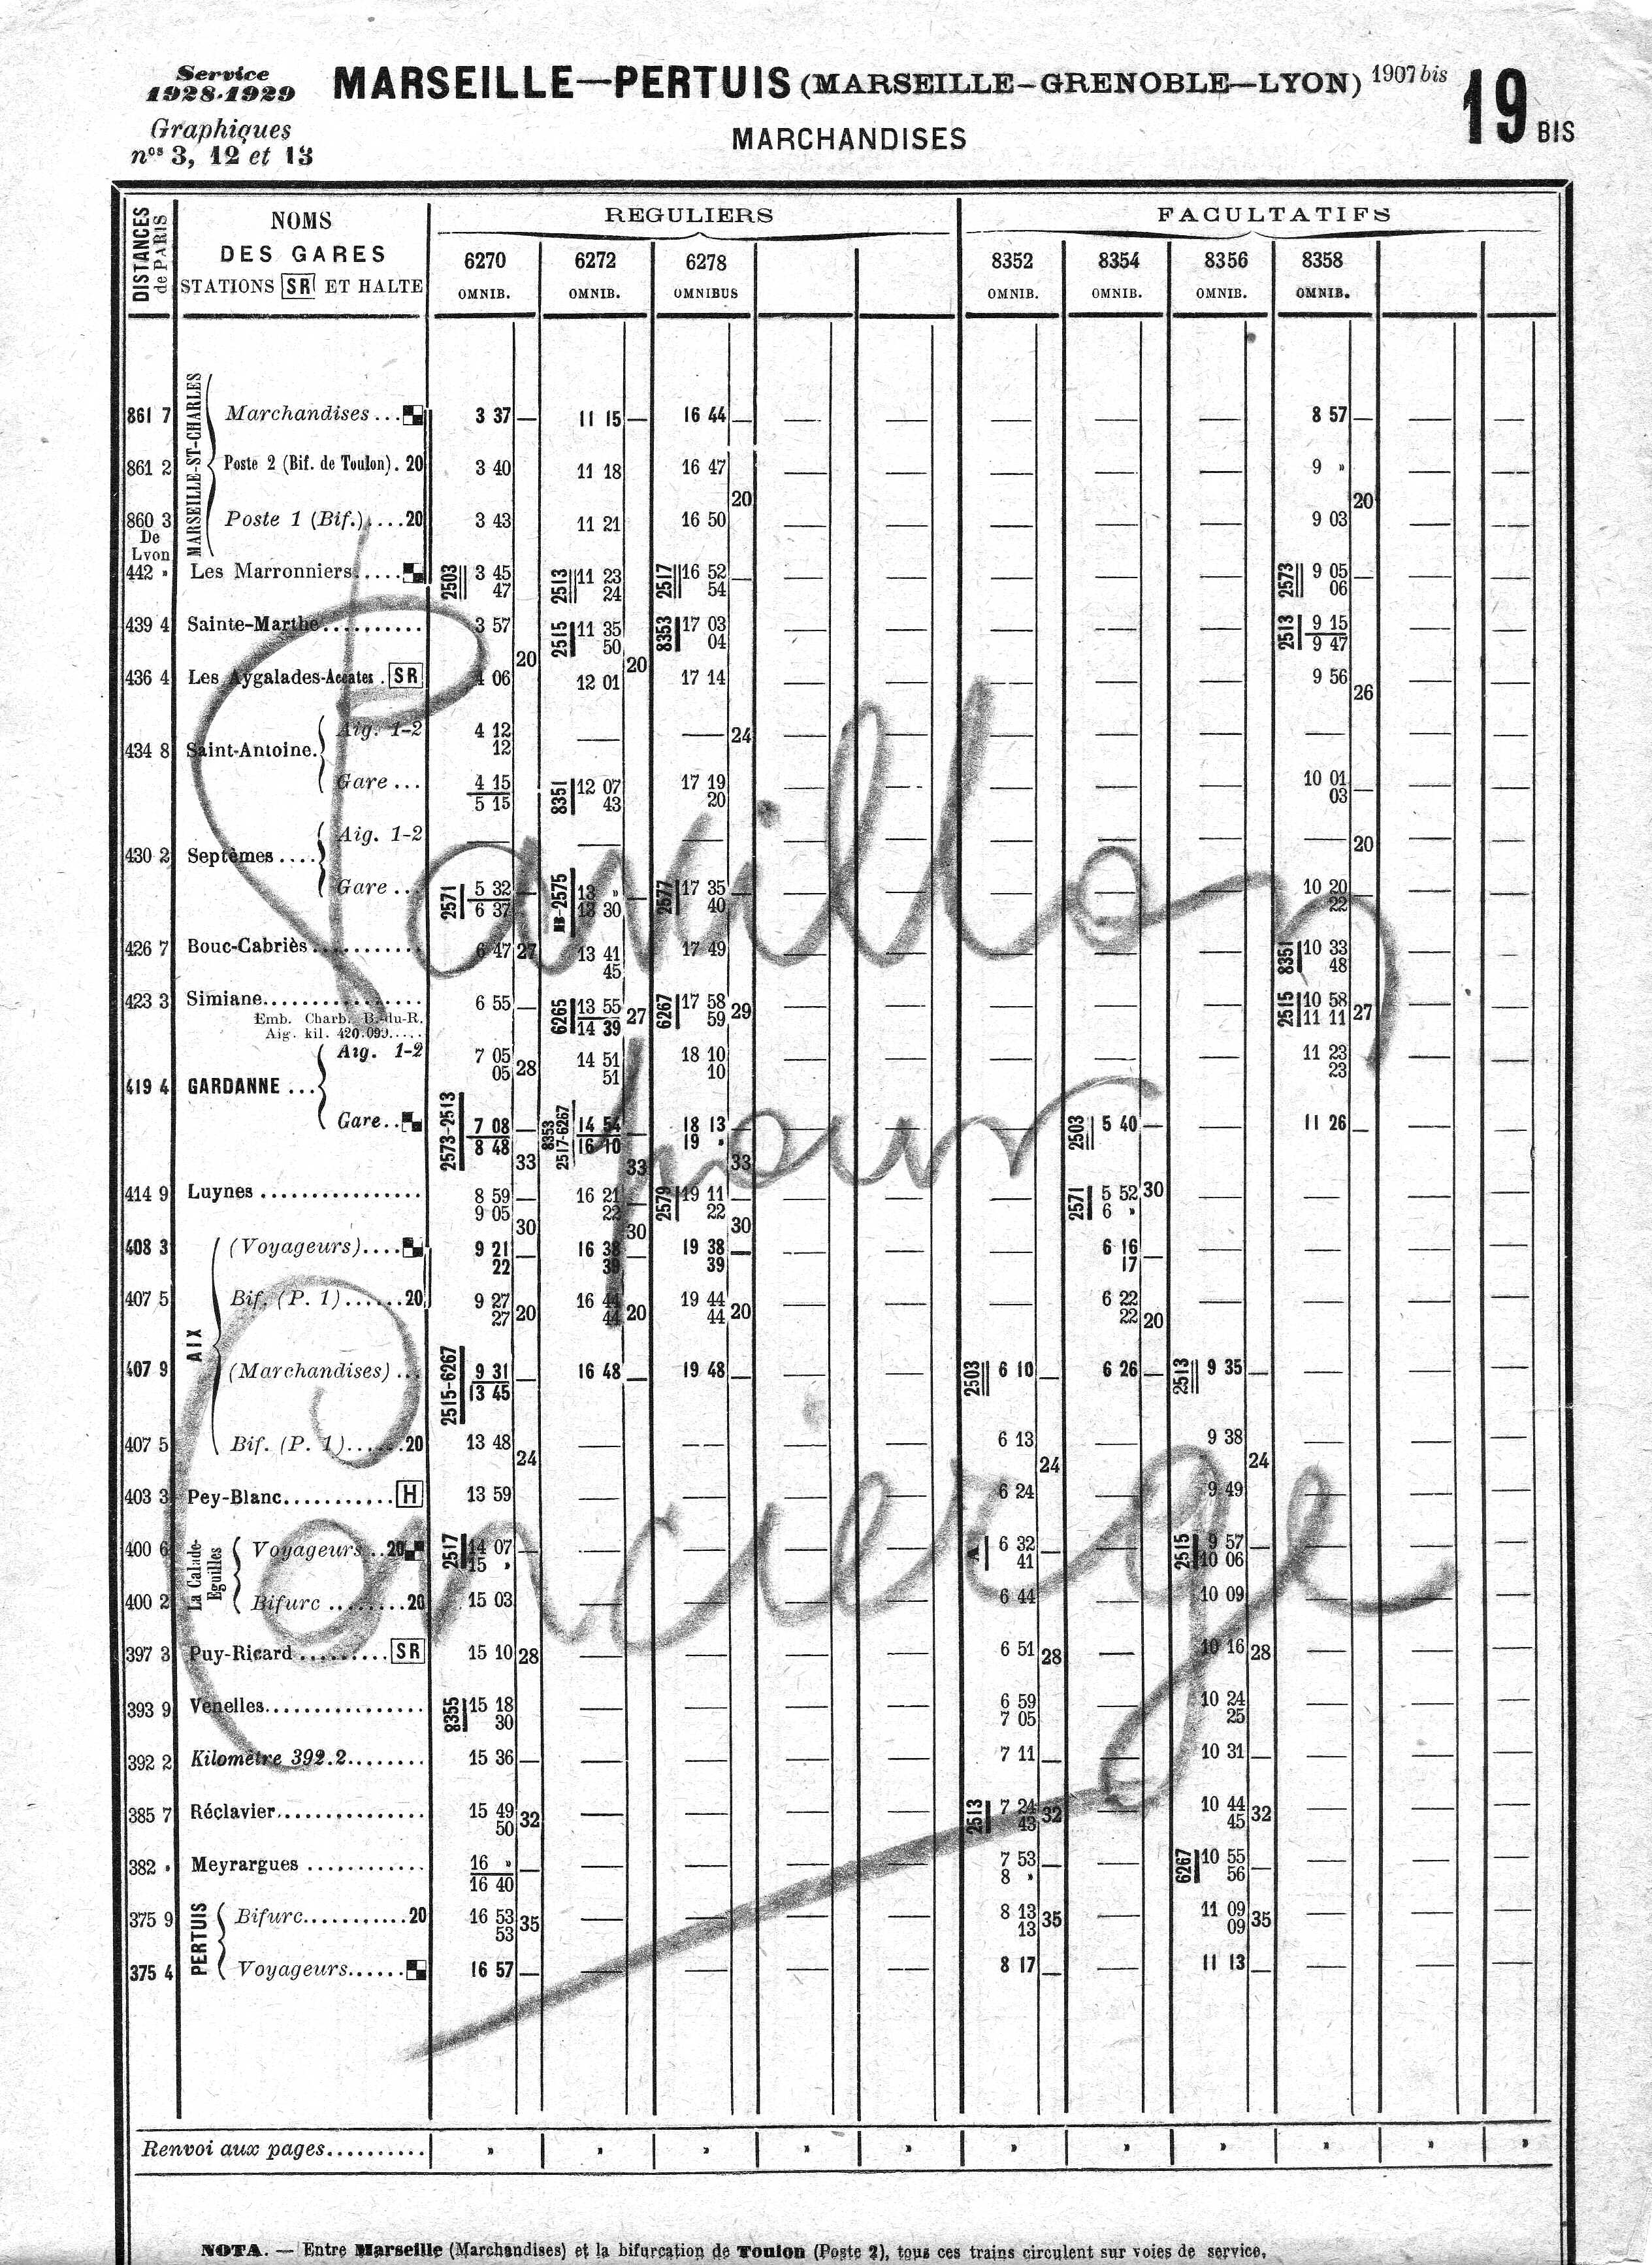 Service
1928-1929
Graphiques
nos 3, 12 et 13
MARSEILLE—PERTUIS (MARSEILLE-GRENOBLE-LYON) 1907 bis
19 BIS
MARCHANDISES
DISTANCES de PARIS
NOMS DES GARES STATIONS SR ET HALTE
REGULIERS FACULTATIFS
6270 6272 6278 8352 8354 8356 8358
OMNIB. OMNIB. OMNIBUS OMNIB. OMNIB. OMNIB. OMNIB.
MARSEILLE-ST-CHARLES
861 7 Marchandises ... 3 37 — 11 15 — 16 44 — — — — — — 8 57 — — —
861 2 Poste 2 (Bif. de Toulon). 20 3 40 11 18 16 47 — — — — — 9 » — —
20 20
860 3 Poste 1 (Bif.).....20 3 43 11 21 16 50 — — — — — 9 03 — —
De Lyon
442 » Les Marronniers..... 2503 3 45 2513 11 23 2517 16 52 — — — — — — 2573 9 05 — — —
47 24 54 06
439 4 Sainte-Marthe.......... 3 57 2515 11 35 8353 17 03 — — — — — 2513 9 15 — —
50 04 9 47
20 20
436 4 Les Aygalades-Accates . SR 4 06 12 01 17 14 — — — — — 9 56 26 — —
434 8 Saint-Antoine. Aig. 1-2 4 12 — — 24 — — — — — — — —
12
Gare ... 4 15 8351 12 07 17 19 — — — — — 10 01 — —
5 15 43 20 03
430 2 Septèmes .... Aig. 1-2 — — — — — — — — — 20 — —
Gare ... 2571 5 32 — MB-2575 13 » — 2577 17 35 — — — — — — 10 20 — — —
6 37 13 30 40 22
426 7 Bouc-Cabriès........... 6 47 27 13 41 17 49 — — — — — 8351 10 33 — —
45 48
423 3 Simiane................ 6 55 — 6265 13 55 27 6267 17 58 29 — — — — — 2515 10 58 27 — —
14 39 59 11 11
Emb. Charb. B.-du-R.
Aig. kil. 420.099.....
419 4 GARDANNE ... Aig. 1-2 7 05 28 14 51 18 10 — — — — — 11 23 — —
05 51 10 23
Gare.. 2573-2513 7 08 — 8353 2517-6267 14 54 — 18 13 — — — — 2503 5 40 — — 11 26 — — —
8 48 16 10 19 »
33 33 33
414 9 Luynes ................ 8 59 — 16 21 — 2579 19 11 — — — — 2571 5 52 30 — — — —
9 05 22 22 6 »
30 30 30
AIX
408 3 (Voyageurs).... 9 21 — 16 38 — 19 38 — — — — 6 16 — — — — —
22 39 39 17
407 5 Bif. (P. 1)......20 9 27 20 16 44 20 19 44 20 — — — 6 22 20 — — — —
27 44 44 22
407 9 (Marchandises) ... 2515-6267 9 31 — 16 48 — 19 48 — — — 2503 6 10 — 6 26 — 2513 9 35 — — — —
13 45
407 5 Bif. (P. 1)......20 13 48 24 — — — — 6 13 24 — 9 38 24 — — —
403 3 Pey-Blanc...........H 13 59 — — — — 6 24 — 9 49 — — —
La Calade-Eguilles
400 6 Voyageurs ..20 2517 14 07 — — — — — A 6 32 — — 2515 9 57 — — — —
15 » 41 10 06
400 2 Bifurc ........20 15 03 — — — — 6 44 — 10 09 — — —
397 3 Puy-Ricard .........SR 15 10 28 — — — — 6 51 28 — 10 16 28 — — —
393 9 Venelles............... 8355 15 18 — — — — 6 59 — 10 24 — — —
30 7 05 25
392 2 Kilomètre 392.2........ 15 36 — — — — — 7 11 — — 10 31 — — — —
385 7 Réclavier.............. 15 49 32 — — — — 2513 7 24 32 — 10 44 32 — — —
50 43 45
382 » Meyrargues ............ 16 » — — — — — 7 53 — — 6267 10 55 — — — —
16 40 8 » 56
PERTUIS
375 9 Bifurc...........20 16 53 35 — — — — 8 13 35 — 11 09 35 — — —
53 13 09
375 4 Voyageurs...... 16 57 — — — — — 8 17 — — 11 13 — — — —
Pavillon
pour
Concierge
Renvoi aux pages.......... » » » » » » » » » » »
NOTA. — Entre Marseille (Marchandises) et la bifurcation de Toulon (Poste 2), tous ces trains circulent sur voies de service.